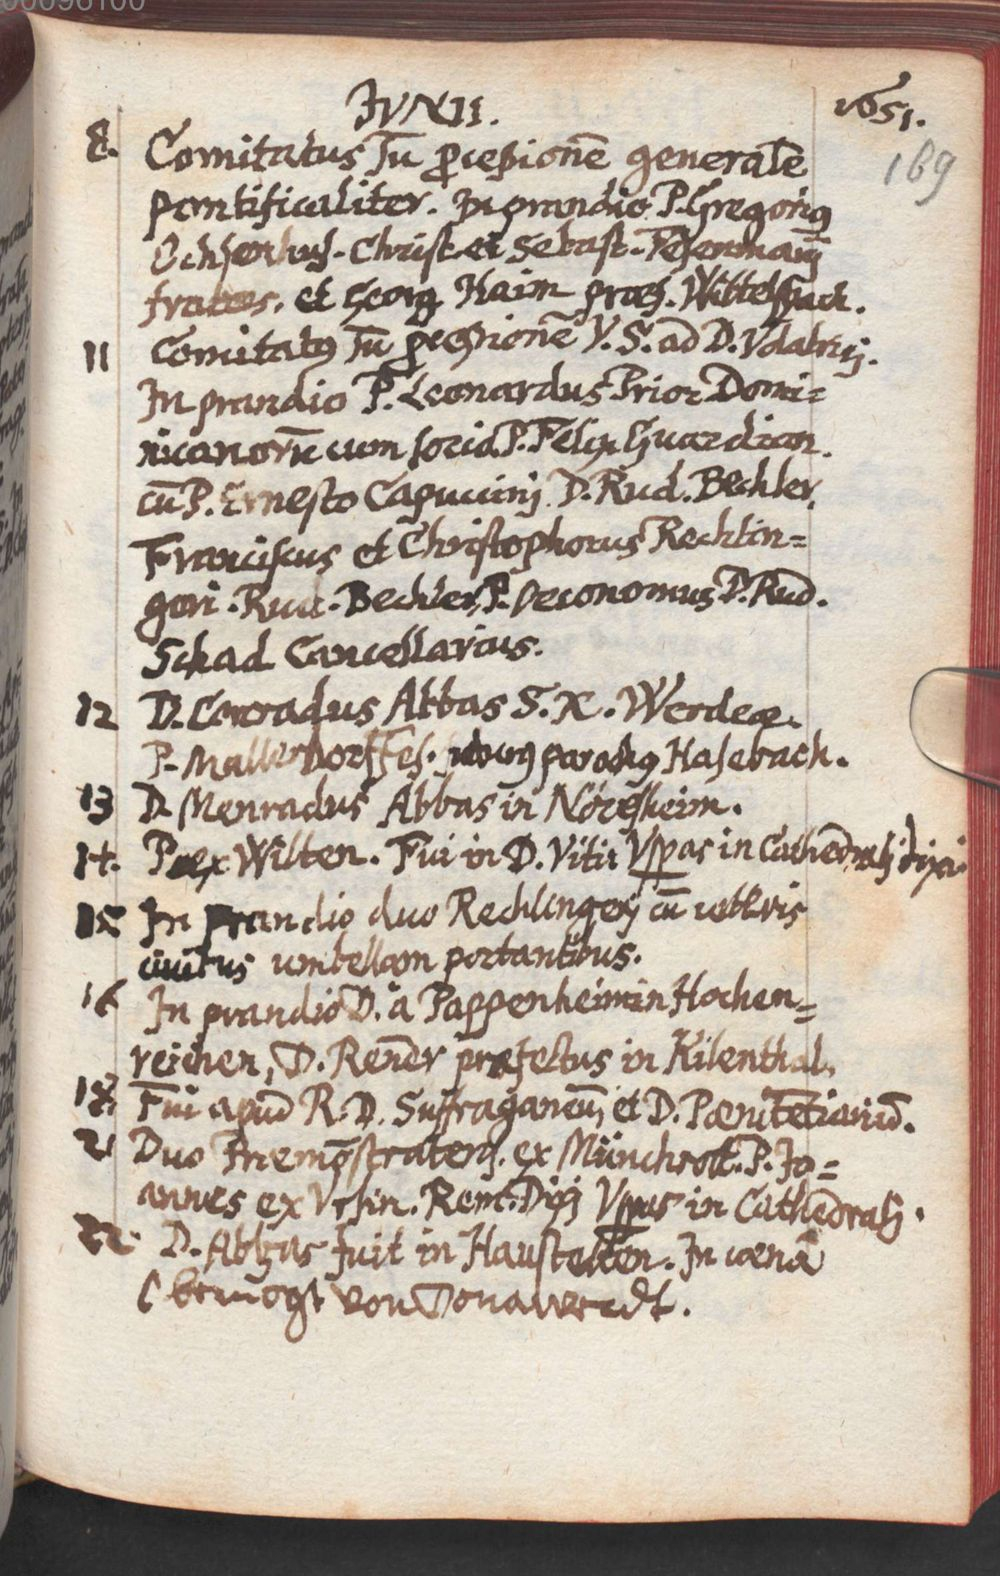 00096100
IVNII. 1651.
169
8. Comitatus sũ p̱cessionẽ generalẽ
pontificaliter. In prandio P. Gregorig
Ochsenhus. Christ. et Sebast.
fratres. et Georg Haim præf. Wittelspach.
11 Comitatg sũ p̱cessionẽ V. S. ad D. Vdalricũ.
In prandio P. Leonardus Prior Domi=
nicanorũ cum socio. P. Felix Guardian.
cũ P. Ernesto Capucinj. D. Rud. Bechler.
Franciscus et Christophorus Rechlin=
geri. Rud. Bechler, P. Oeconomus P. Rud.
Schad Cancellarius.
12 D. Conradus Abbas S. X. Werdeæ.
P. Mallerdorffes. parochg Hasebach.
13 D. Menradus Abbas in Néresheim.
14. P. ex Wilten. Fui in D. Viti Vesp̱as in Cathedralj dixi.
15 In prandio duo Rechlingerj cũ
umbellam portantibus.
16 In prandio D. à Pappenheim in Hochen=
reichen, D. Render præfectus in Kilenthal.
18. Fui apud R. D. Suffraganeũ, et D. Pœnitẽtiariũ.
21 Duo Præmõstratens. ex Münchrott. P. Jo=
annes ex Vrsin. Rem. Dixi Vesp̱as in Cathedralj.
22. D. Abbas fuit in Haustetten. In cœnâ
Obervogt von Donawerdt.